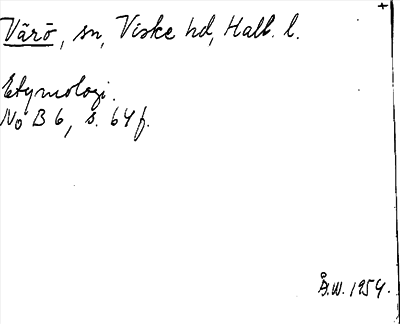 Värö, sn, Viske hd, Hall. l.
Etymologi.
NoB 6, s. 64 f.
Å.W. 1954.